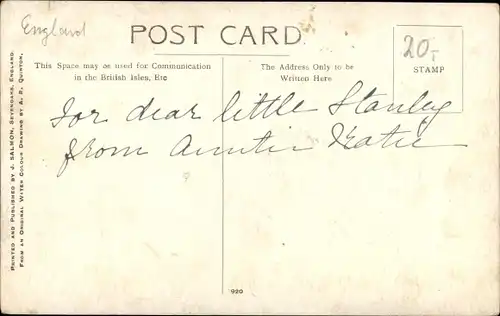 England
POST CARD
This Space may be used for Communication
in the British Isles, Etc
The Address Only to be
Written Here
20,-
STAMP
For dear little Stanley
from Auntie Katie
PRINTED AND PUBLISHED BY J. SALMON, SEVENOAKS, ENGLAND.
FROM AN ORIGINAL WATER COLOUR DRAWING BY A. R. QUINTON.
920